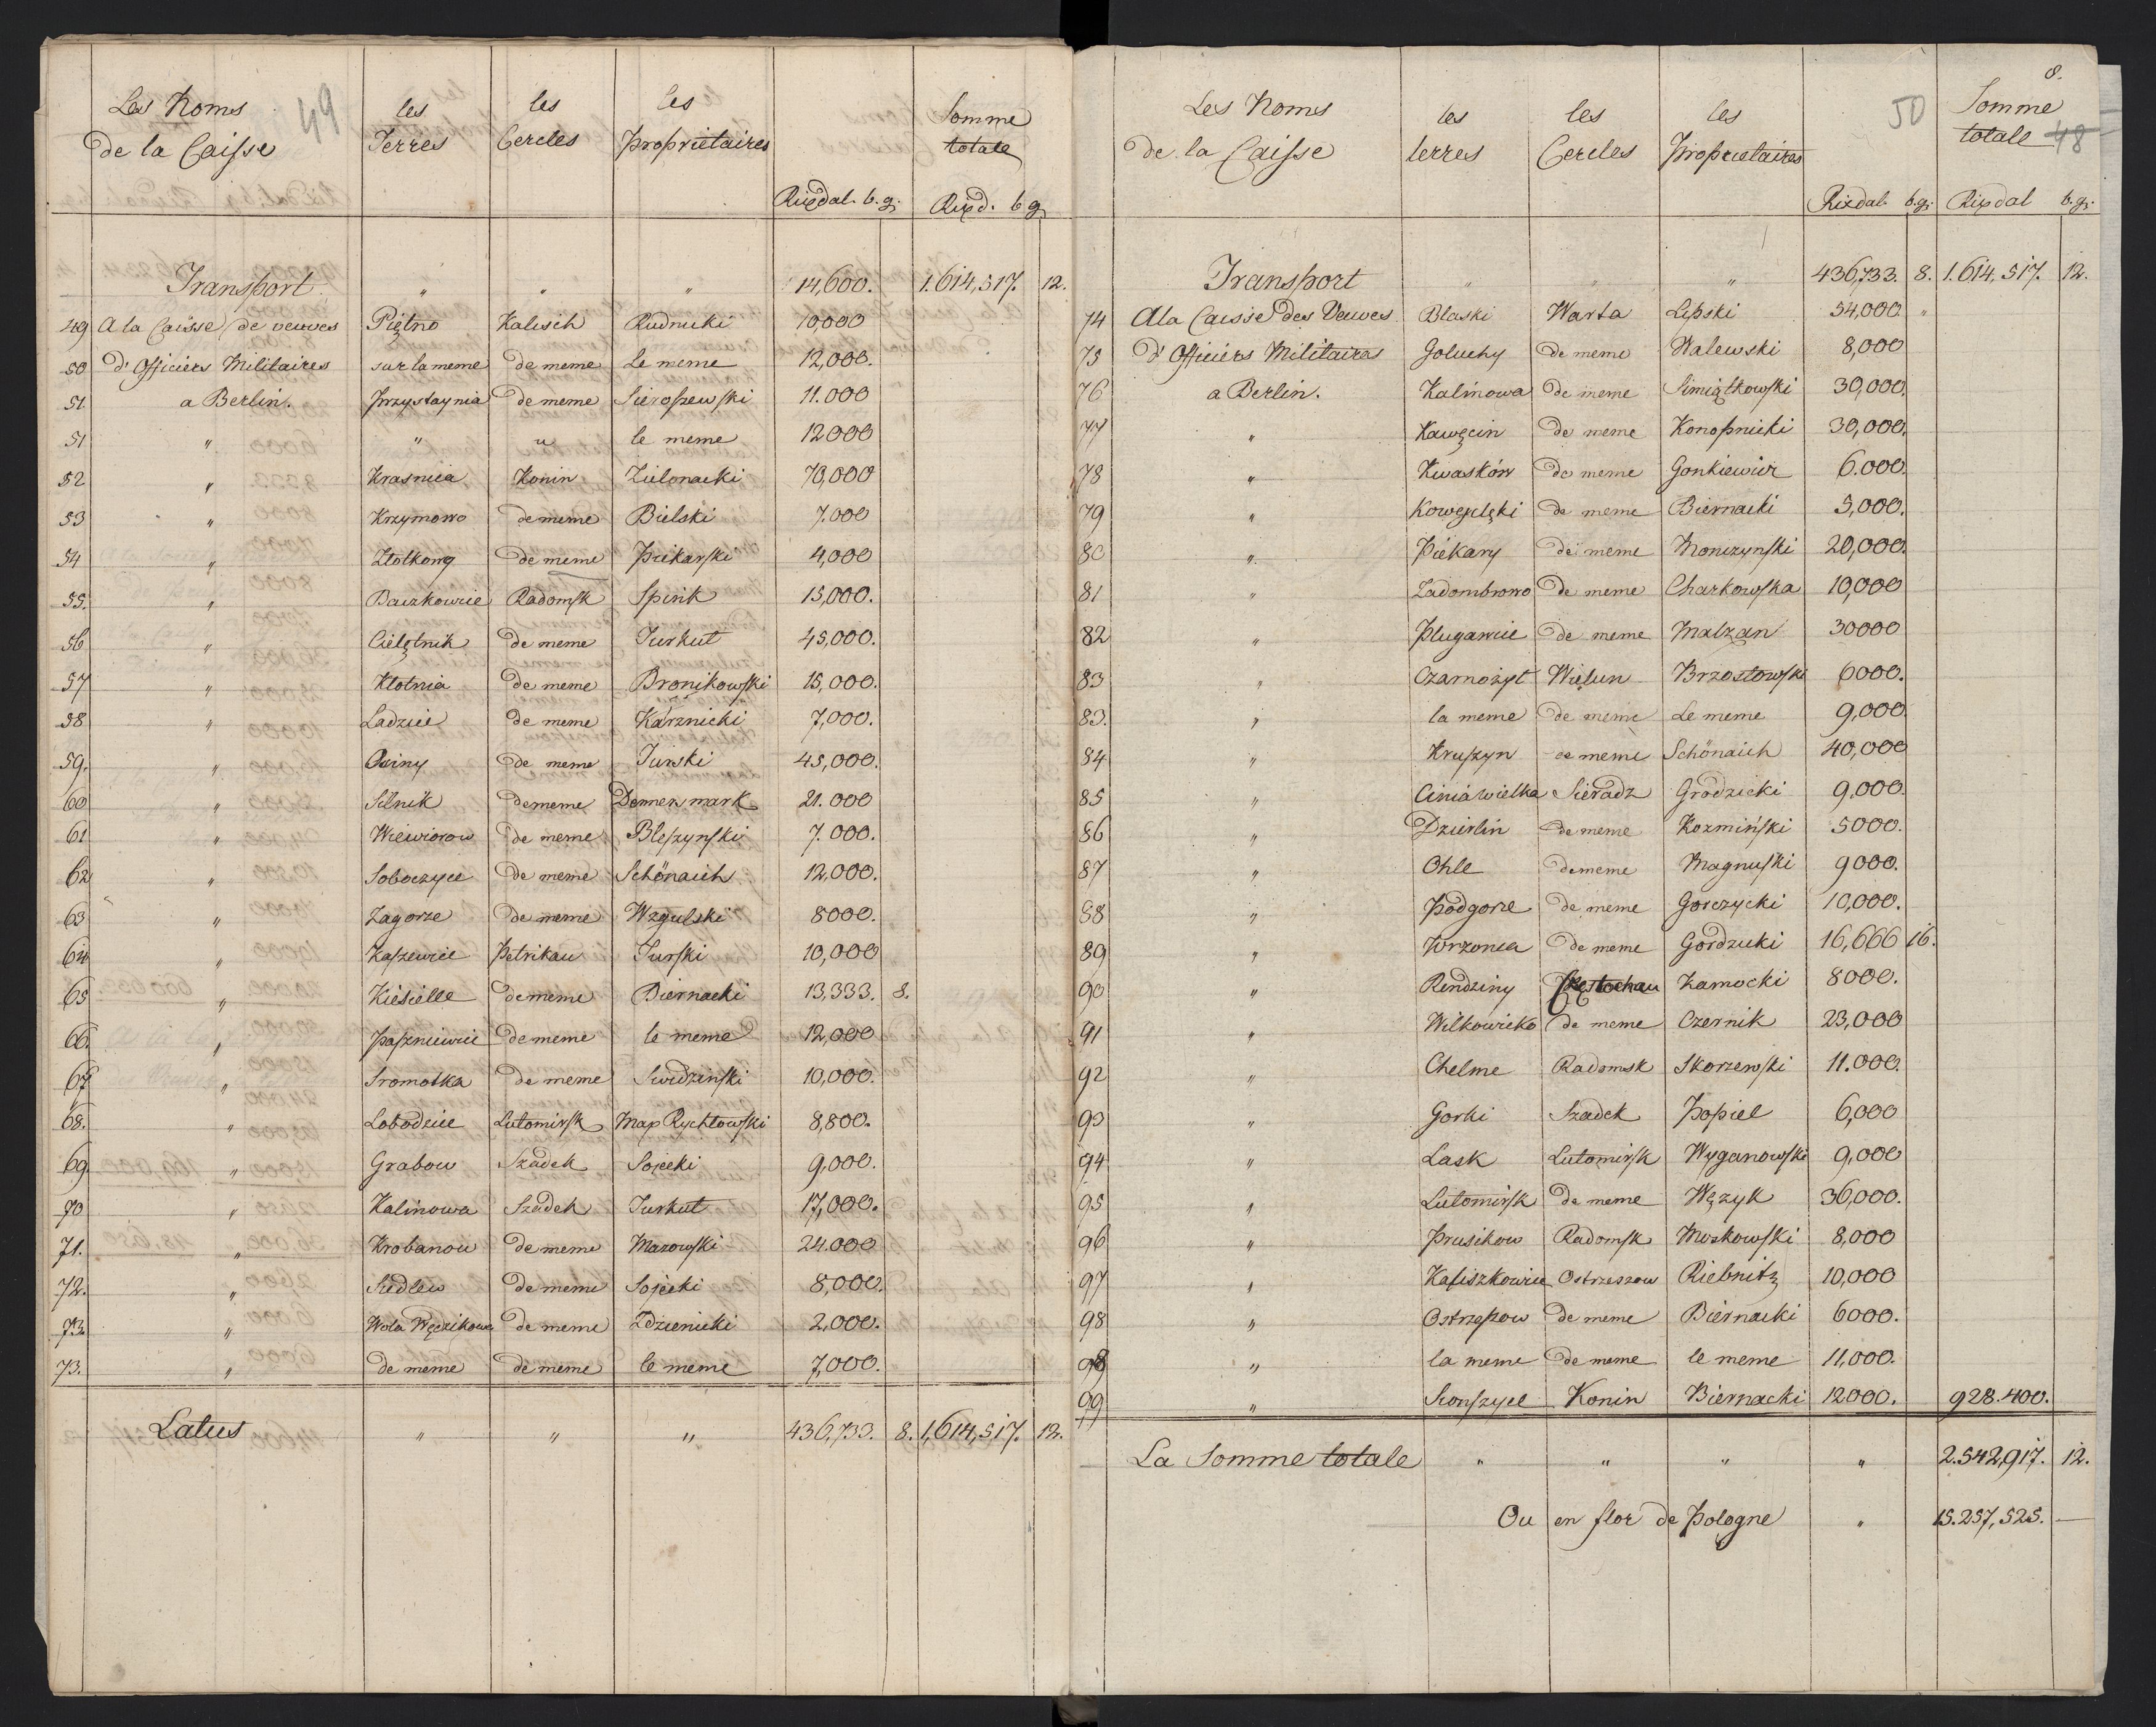 Les Noms de la Caisse 49 | les Terres | les Cercles | les Proprietaires | Rixdal. b. g. | Somme totale Rixd. b g
Transport " " " 14,600. 1.614,517. 12.
49 A la Caisse de veuves Piętno Kalisch Rudnicki 10,000
50 d'Officiers Militaires sur la meme de meme Le meme 12,000.
51 a Berlin. Przystaynia de meme Sieroszewski 11.000
51 " " " le meme 12000
52 " Krasnica Konin Zielonacki 70,000
53 " Krzymowo de meme Bielski 7.000
54 " Zlotkowy de meme Piekarski 4,000
55. " Baczkowice Radomsk Spinik 15,000.
56 " Cielętnik de meme Turkut 45,000.
57 " Klotnia de meme Bronikowski 15,000.
58 " Ladzice de meme Karznicki 7,000.
59. " Osiny de meme Turski 45,000.
60 " Silnik de meme Dennenmark 21.000
61 " Wiewiorow de meme Bleszynski 7.000.
62 " Soboczyce de meme Schönaich 12,000.
63 " Zagorze de meme Wzgulski 8000.
64 " Kaszewice Petrikau Turski 10,000
65 " Kiesielle de meme Biernacki 13,333. 8.
66 " Paszniewice de meme le meme 12,000
67 " Sromotka de meme Swidzinski 10,000.
68. " Lobodzice Lutomirsk Map Rychlowski 8,800.
69 " Grabow Szadek Sojecki 9,000.
70 " Kalinowa Szadek Turkut 17,000.
71. " Krobanow de meme Mazowski 24.000
72. " Siedlew de meme Sojecki 8,000.
73. " Wola Węzikowa de meme Zdzienicki 2,000.
73. " de meme de meme le meme 7,000.
Latus " " " 436,733. 8. 1,614,517. 12.
8.
Les Noms de la Caisse | les terres | les Cercles | les Proprietaires | 50 Rixdal. b.g. | Somme totale 48 Rixdal b.g.
Transport " " " 436,733. 8. 1.614,517. 12.
74 A la Caisse des Veuves Blaski Warta Lipski 54,000 "
75 d'Officiers Militaires Goluchy de meme Walewski 8,000
76 a Berlin. Kalinowa de meme Simiątkowski 30,000.
77 " Kawęcin de meme Konopnicki 30,000.
78 " Kwasków de meme Gonkiewicz 6.000
79 " de meme Biernacki 5,000.
80 " Piekary de meme Monczynski 20,000.
81 " Zadombrowo de meme Charkowska 10,000
82 " Plugawice de meme Malzan 30000
83 " Czarnożyt Wielun Brzostowski 6000.
83. " la meme de meme Le meme 9,000.
84 " Kruszyn de meme Schönaich 40,000
85 " Cinia wielka Sieradz Grodzicki 9,000.
86 " Dzierlin de meme Kozmiński 5000.
87 " Ohle de meme Magnuski 9000.
88 " Podgorze de meme Gorczycki 10,000.
89 " Wrzonca de meme Gordzicki 16,666 16.
90 " Rendziny Częstochau Zamocki 8000.
91 " Wilkowicko de meme Czernik 23,000
92 " Chelme Radomsk Skorzewski 11.000.
93 " Gorki Szadek Popiel 6,000
94 " Lask Lutomirsk Wyganowski 9,000
95 " Lutomirsk de meme Węzyk 36,000.
96 " Prusikow Radomsk Moskowski 8,000
97 " Kaliszkowice Ostrzeszow Riebnitz 10,000
98 " Ostrzeszow de meme Biernacki 6000.
98 " la meme de meme le meme 11,000.
99 " Sionszyce Konin Biernacki 12000. 928.400.
La Somme totale " " " " 2.542,917. 12.
Ou en flor de Pologne " 15.257,525. —